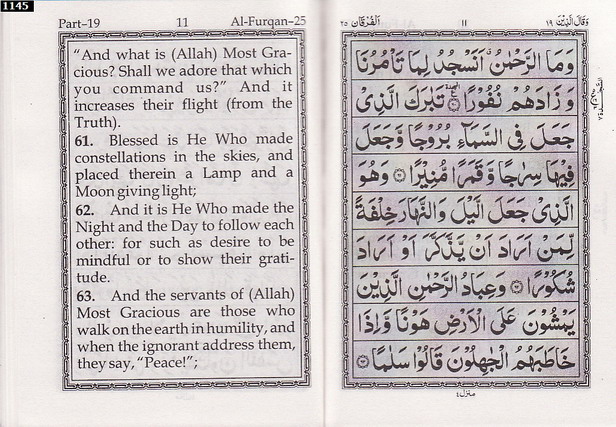 1145
Part–19 11 Al-Furqan–25
“And what is (Allah) Most Gra-
cious? Shall we adore that which
you command us?” And it
increases their flight (from the
Truth).
61. Blessed is He Who made
constellations in the skies, and
placed therein a Lamp and a
Moon giving light;
62. And it is He Who made the
Night and the Day to follow each
other: for such as desire to be
mindful or to show their grati-
tude.
63. And the servants of (Allah)
Most Gracious are those who
walk on the earth in humility, and
when the ignorant address them,
they say, “Peace!”;
وَقَالَ الَّذِيْنَ ١٩ ١١ اَلْفُرْقَان ٢٥
وَمَا الرَّحْمٰنُ اَنَسْجُدُ لِمَا تَاْمُرُنَا
وَزَادَهُمْ نُفُوْرًا ۝ تَبٰرَكَ الَّذِىْ
جَعَلَ فِى السَّمَآءِ بُرُوْجًا وَّجَعَلَ
فِيْهَا سِرٰجًا وَّقَمَرًا مُّنِيْرًا ۝ وَهُوَ
الَّذِىْ جَعَلَ الَّيْلَ وَالنَّهَارَ خِلْفَةً
لِّمَنْ اَرَادَ اَنْ يَّذَّكَّرَ اَوْ اَرَادَ
شُكُوْرًا ۝ وَعِبَادُ الرَّحْمٰنِ الَّذِيْنَ
يَمْشُوْنَ عَلَى الْاَرْضِ هَوْنًا وَّاِذَا
خَاطَبَهُمُ الْجٰهِلُوْنَ قَالُوْا سَلٰمًا ۝
منزل ٤